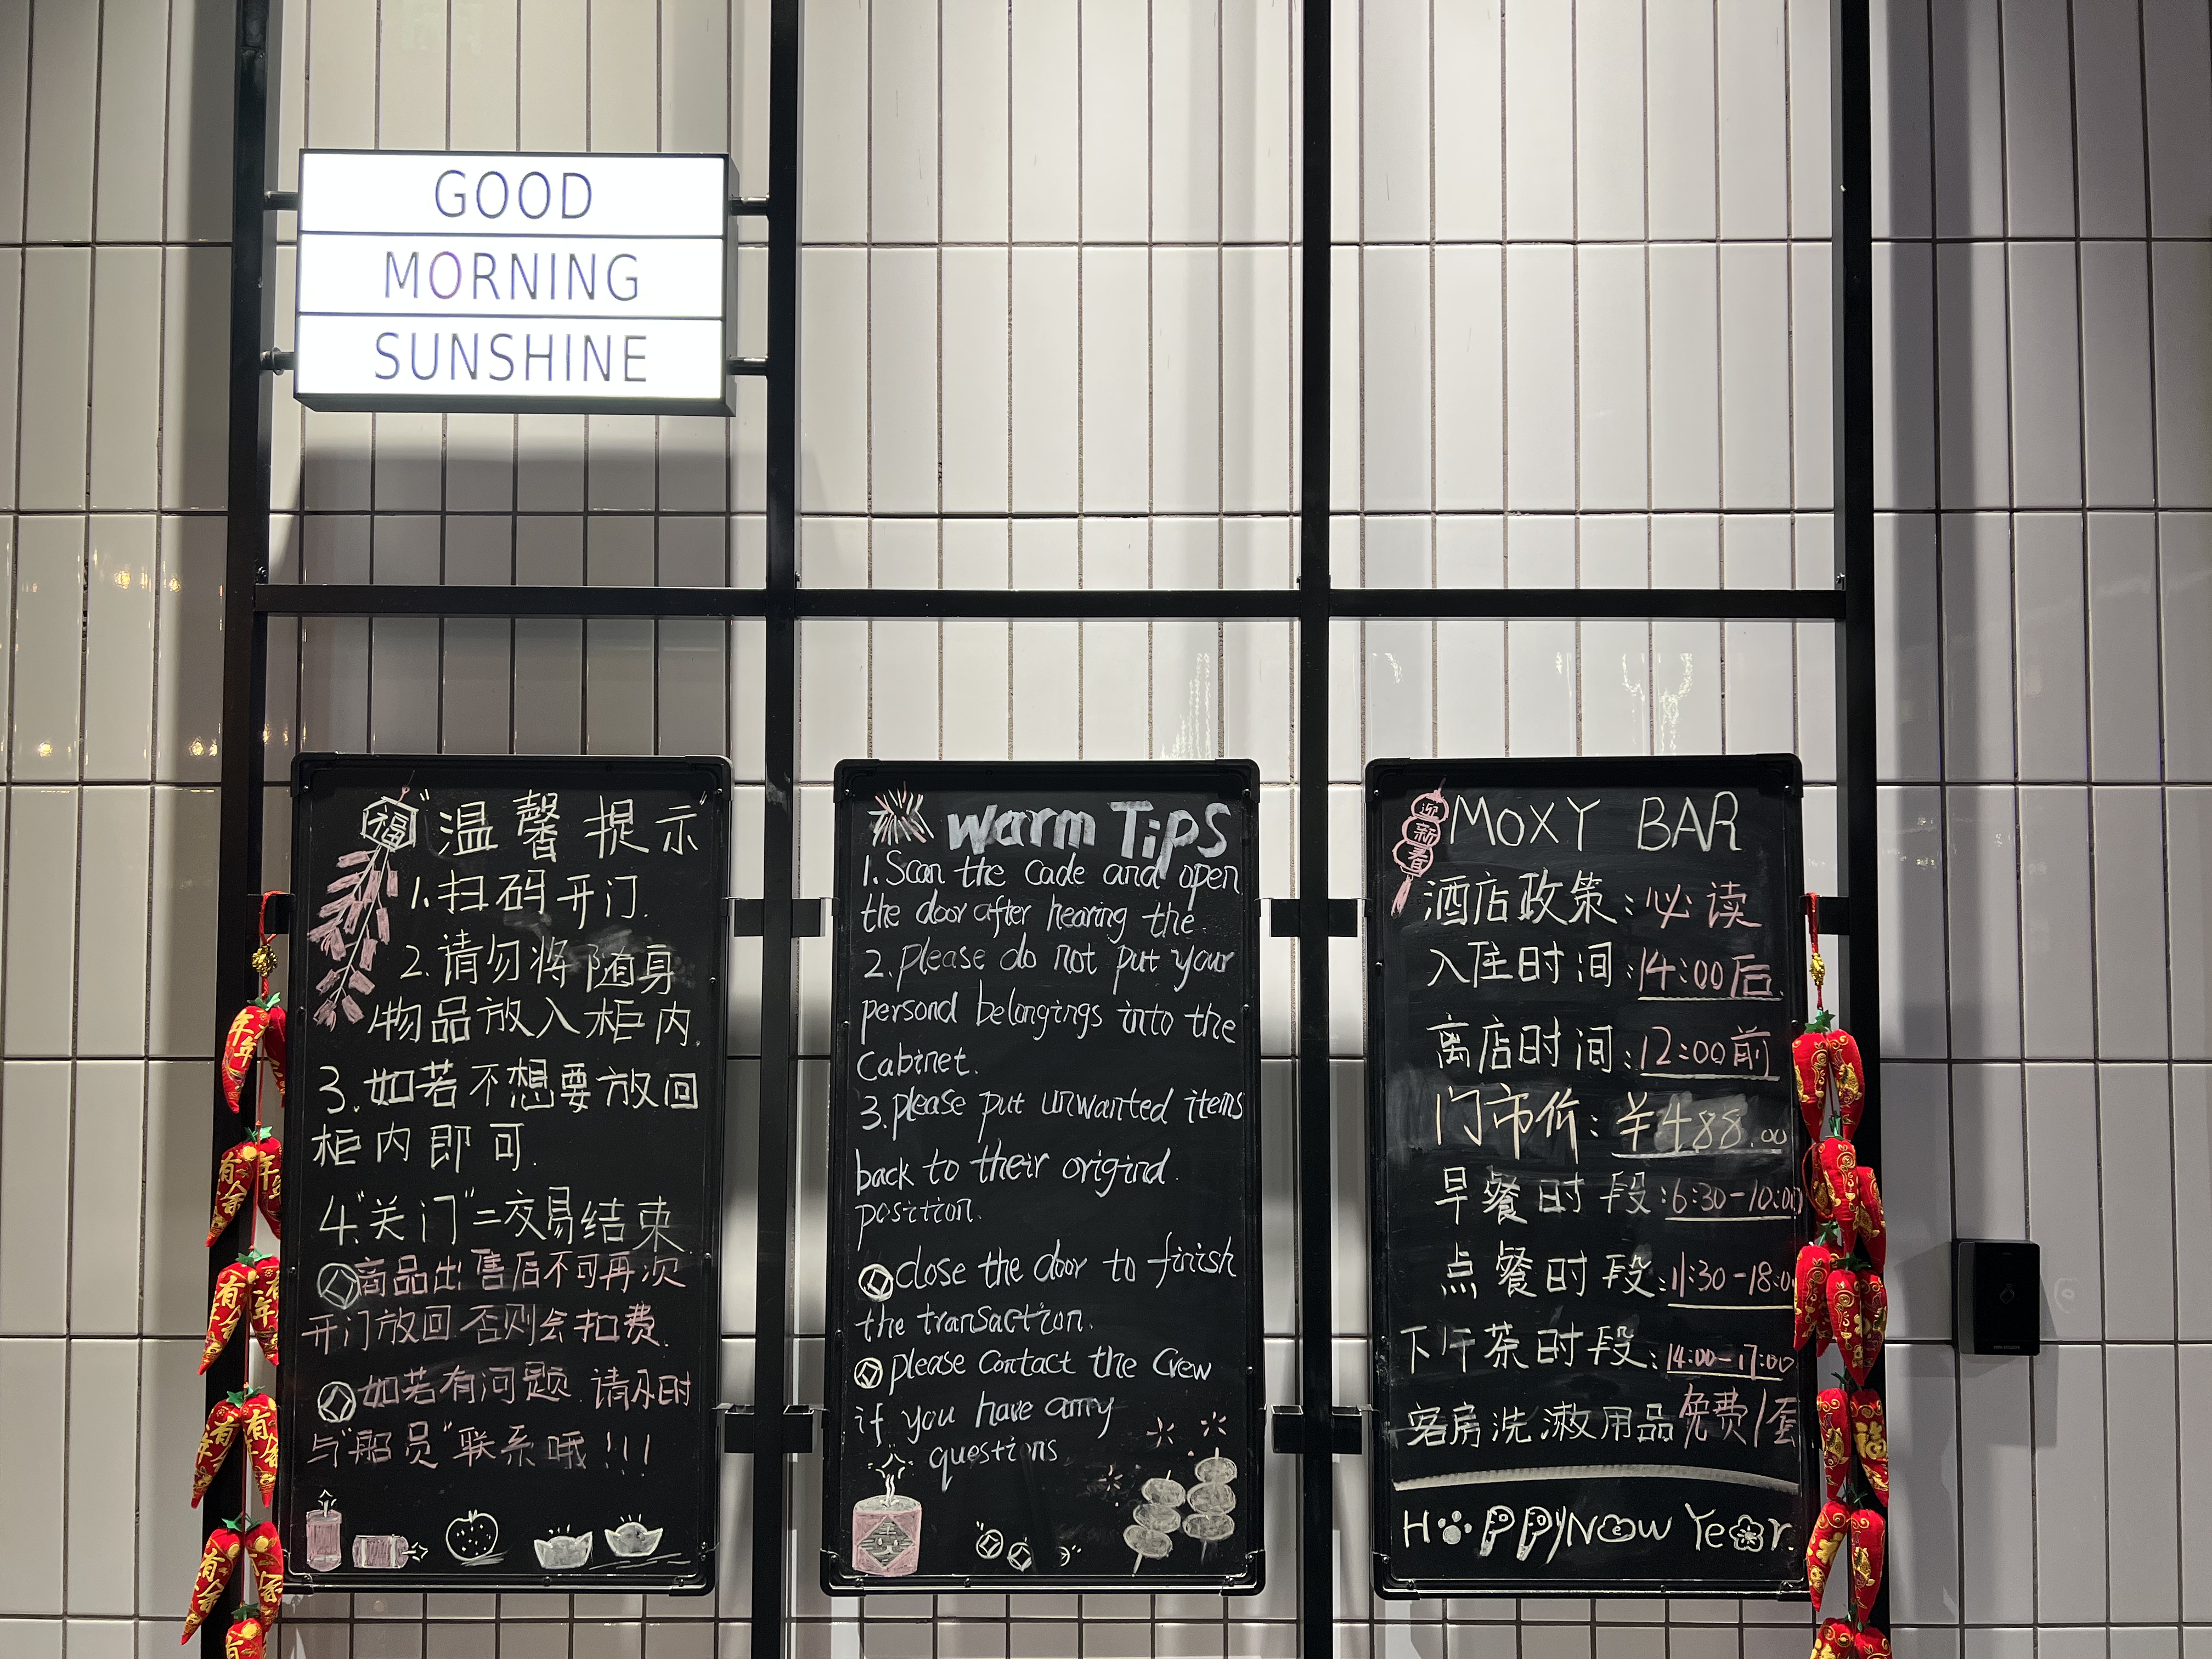 GOOD
MORNING
SUNSHINE
福
"温馨提示"
1.扫码开门.
2.请勿将随身
物品放入柜内.
3.如若不想要放回
柜内即可.
4."关门"=交易结束
商品出售后不可再次
开门放回.否则会扣费.
如若有问题.请及时
与"船员"联系哦!!!
Warm Tips
1.Scan the Cade and open
the door after hearing the.
2.please do not put your
persond belongings into the
Cabinet.
3.please put unwanted items
back to their origind.
position.
close the door to finish
the transaction.
please Contact the Crew
if you have any
questions
迎新春
MOXY BAR
酒店政策:必读
入住时间:14:00后.
离店时间:12:00前
门市价:¥488.00
早餐时段:6:30-10:00
点餐时段:11:30-18:00
下午茶时段:14:00-17:00
客房洗漱用品免费1套
HAPPY NOW YeAr.
年年
有余
年年
有余
有余
年年
有余
有余
福